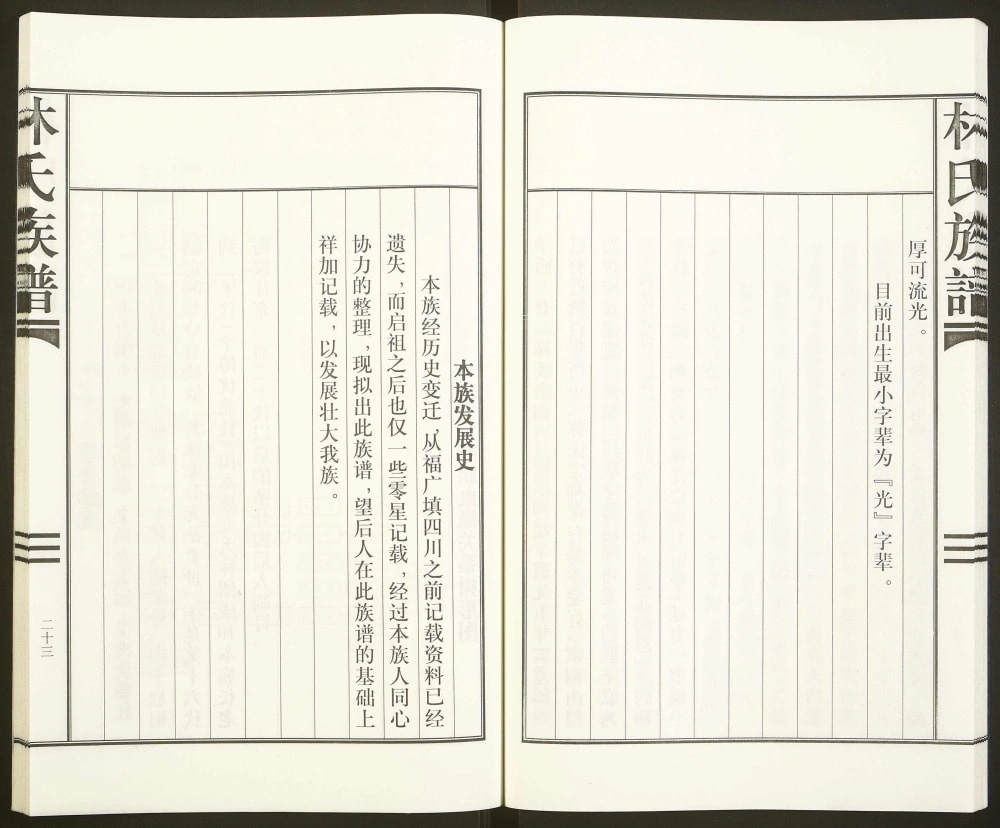 林氏族谱
厚可流光。
目前出生最小字辈为『光』字辈。
本族发展史
本族经历史变迁，从福广填四川之前记载资料已经
遗失，而启祖之后也仅一些零星记载，经过本族人同心
协力的整理，现拟出此族谱，望后人在此族谱的基础上
祥加记载，以发展壮大我族。
林氏族谱
二十三